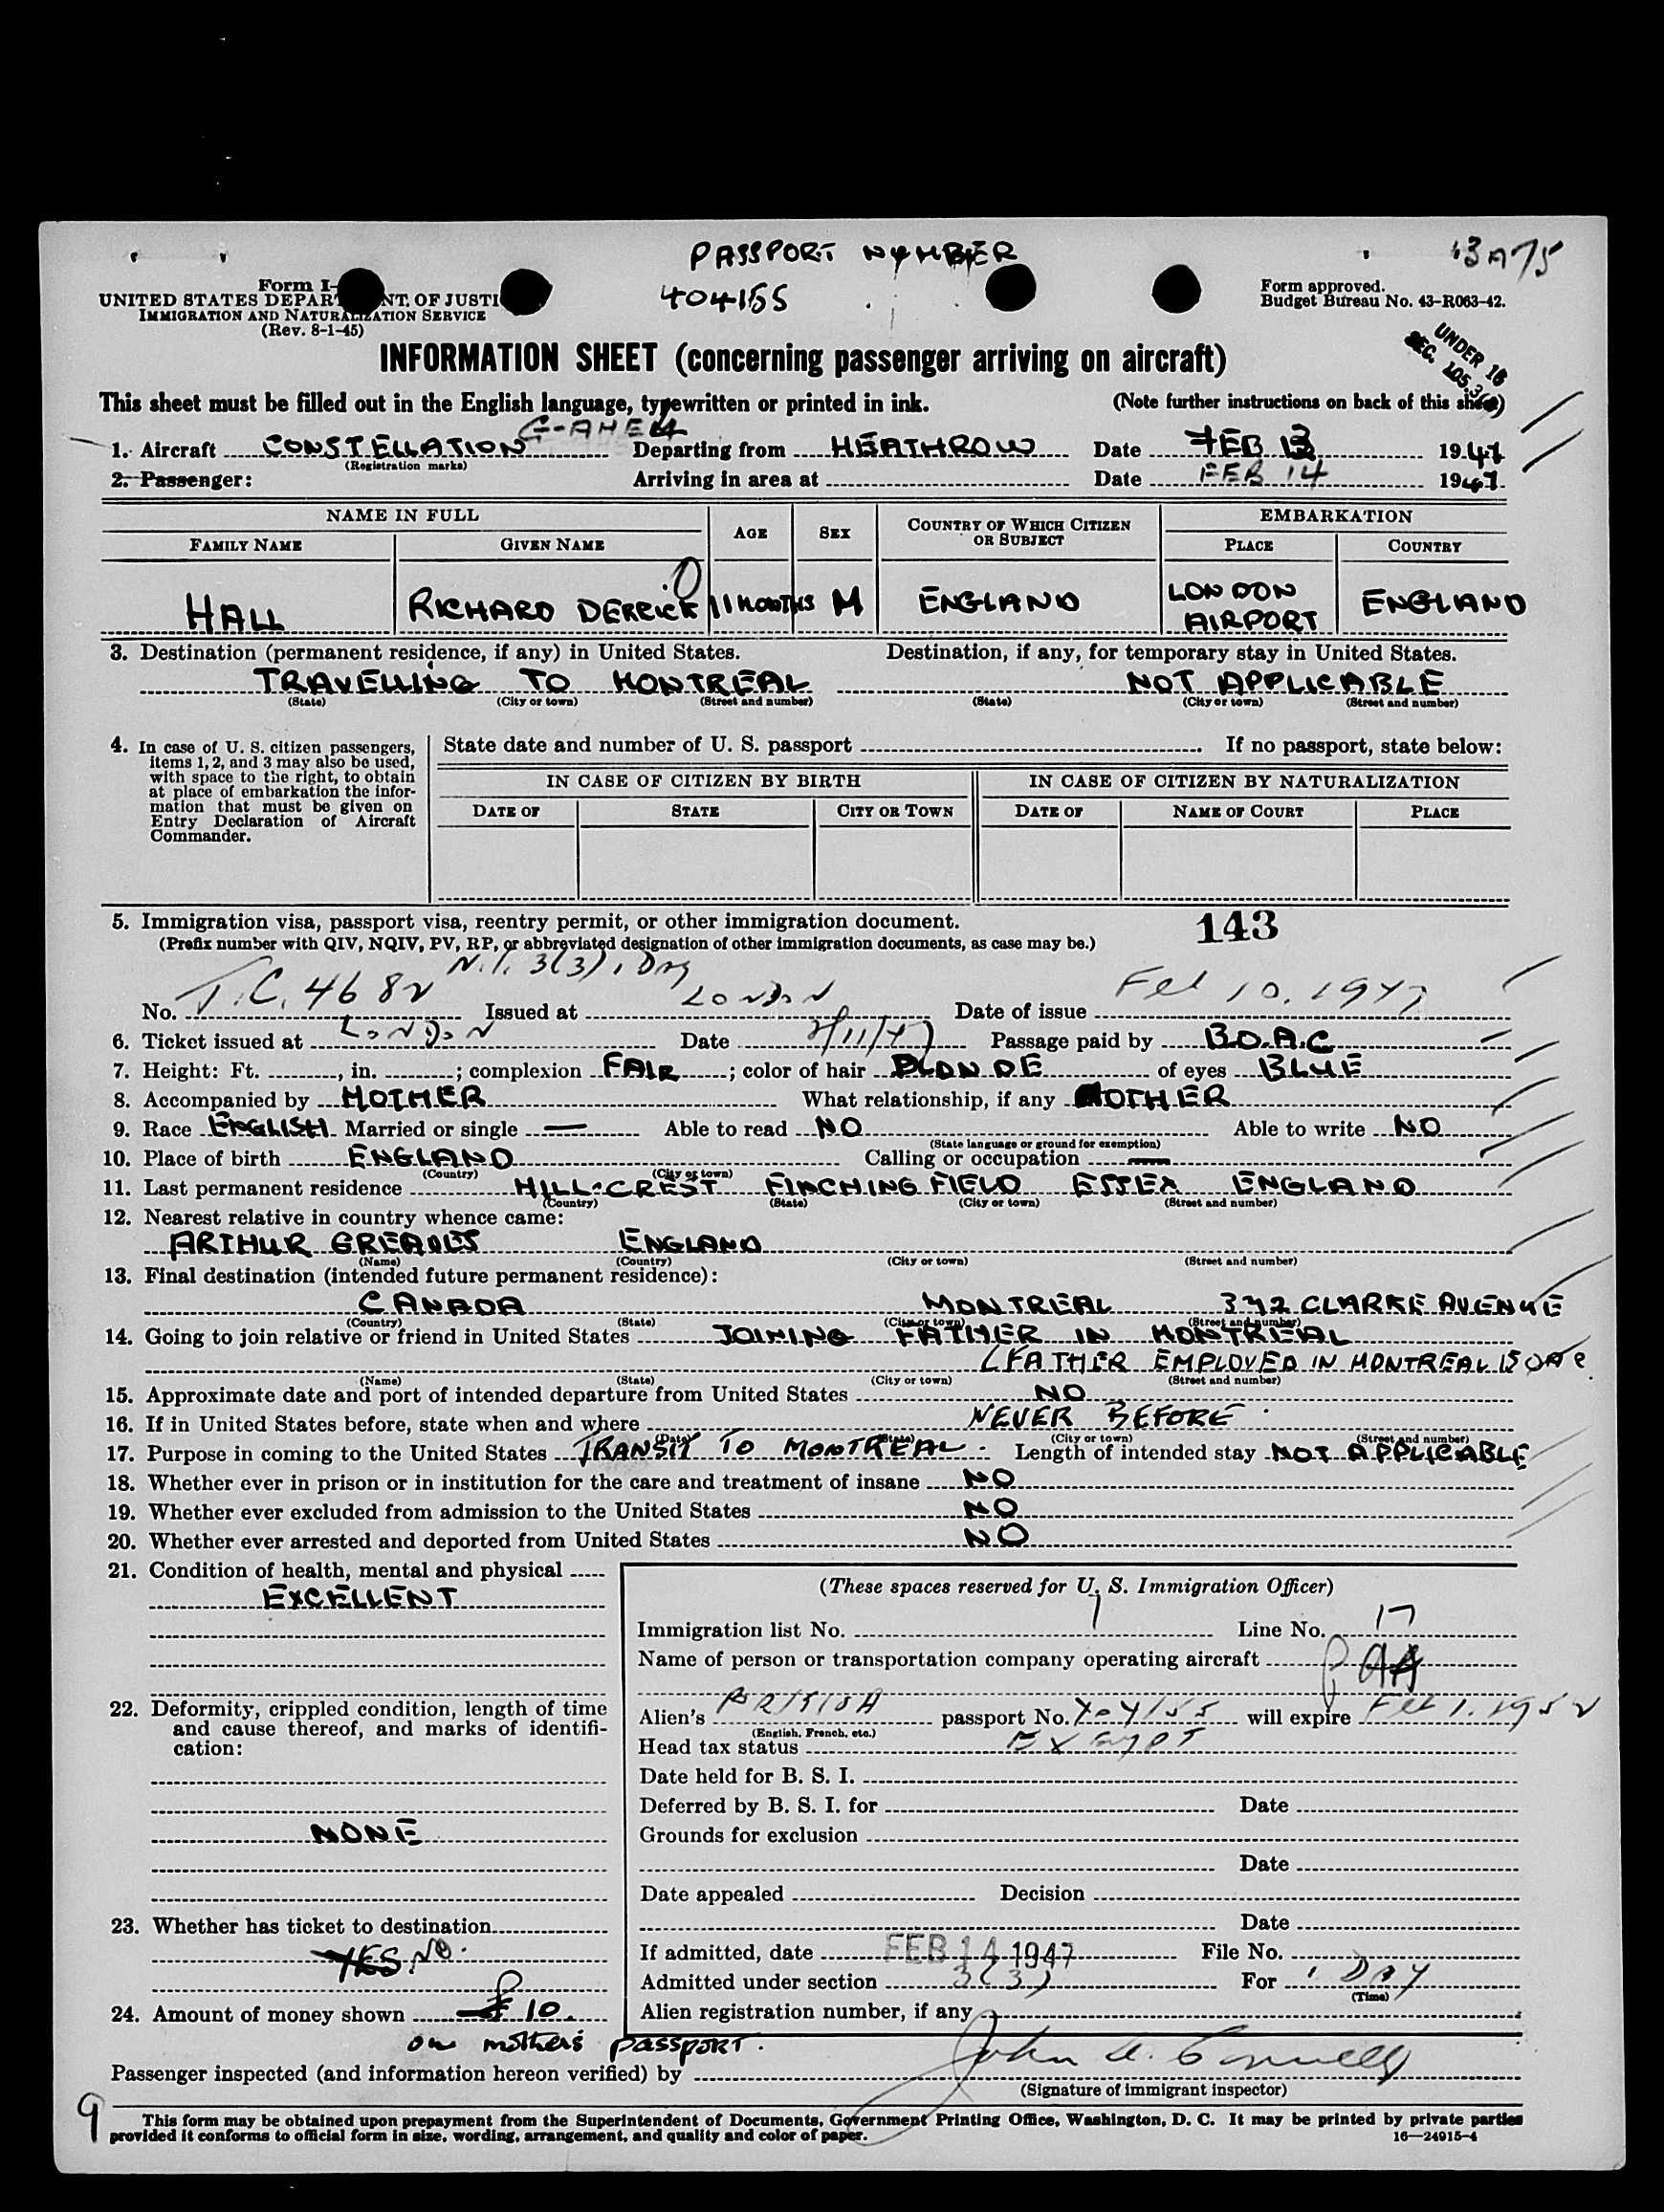 PASSPORT NUMBER
404155
Form I-
UNITED STATES DEPAR NT. OF JUSTI
IMMIGRATION AND NATURALIZATION SERVICE
(Rev. 8-1-45)
Form approved.
Budget Bureau No. 43-R063-42.
UNDER 16
SEC. 105.3
INFORMATION SHEET (concerning passenger arriving on aircraft)
This sheet must be filled out in the English language, typewritten or printed in ink. (Note further instructions on back of this sheet)
1. Aircraft CONSTELLATION Departing from HEATHROW Date FEB 13 1947
(Registration marks)
2. Passenger: Arriving in area at Date FEB 14 1947
NAME IN FULL AGE SEX COUNTRY OF WHICH CITIZEN OR SUBJECT EMBARKATION
FAMILY NAME GIVEN NAME PLACE COUNTRY
HALL RICHARD DERRICK 11 MONTHS M ENGLAND LONDON AIRPORT ENGLAND
3. Destination (permanent residence, if any) in United States. Destination, if any, for temporary stay in United States.
TRAVELLING TO MONTREAL NOT APPLICABLE
(State) (City or town) (Street and number) (State) (City or town) (Street and number)
4. In case of U. S. citizen passengers, items 1, 2, and 3 may also be used, with space to the right, to obtain at place of embarkation the information that must be given on Entry Declaration of Aircraft Commander.
State date and number of U. S. passport If no passport, state below:
IN CASE OF CITIZEN BY BIRTH IN CASE OF CITIZEN BY NATURALIZATION
DATE OF STATE CITY OR TOWN DATE OF NAME OF COURT PLACE
5. Immigration visa, passport visa, reentry permit, or other immigration document. 143
(Prefix number with QIV, NQIV, PV, RP, or abbreviated designation of other immigration documents, as case may be.)
3(3), 1 Day
No. T.C. 4682 Issued at LONDON Date of issue Feb 10. 1947
6. Ticket issued at LONDON Date 2/11/47 Passage paid by B.O.A.C
7. Height: Ft. , in. ; complexion FAIR ; color of hair BLONDE of eyes BLUE
8. Accompanied by MOTHER What relationship, if any MOTHER
9. Race ENGLISH Married or single — Able to read NO Able to write NO
(State language or ground for exemption)
10. Place of birth ENGLAND Calling or occupation —
(Country) (City or town)
11. Last permanent residence HILL-CREST FINCHINGFIELD ESSEX ENGLAND
(Country) (State) (City or town) (Street and number)
12. Nearest relative in country whence came:
ARTHUR GREAVES ENGLAND
(Name) (Country) (City or town) (Street and number)
13. Final destination (intended future permanent residence):
CANADA MONTREAL 392 CLARKE AVENUE
(Country) (State) (City or town) (Street and number)
14. Going to join relative or friend in United States JOINING FATHER IN MONTREAL
(FATHER EMPLOYED IN MONTREAL BOAC
(Name) (State) (City or town) (Street and number)
15. Approximate date and port of intended departure from United States NO
16. If in United States before, state when and where NEVER BEFORE
(Date) (State) (City or town) (Street and number)
17. Purpose in coming to the United States TRANSIT TO MONTREAL. Length of intended stay NOT APPLICABLE
18. Whether ever in prison or in institution for the care and treatment of insane NO
19. Whether ever excluded from admission to the United States NO
20. Whether ever arrested and deported from United States NO
21. Condition of health, mental and physical
EXCELLENT
22. Deformity, crippled condition, length of time and cause thereof, and marks of identification:
NONE
23. Whether has ticket to destination
YES NO.
24. Amount of money shown £10.
on mother's passport.
(These spaces reserved for U. S. Immigration Officer)
Immigration list No. 1 Line No. 17
Name of person or transportation company operating aircraft PAA
Alien's BRITISH passport No. 404155 will expire Feb 1. 1952
(English, French, etc.)
Head tax status Exempt
Date held for B. S. I.
Deferred by B. S. I. for Date
Grounds for exclusion
Date
Date appealed Decision
Date
If admitted, date FEB 14 1947 File No.
Admitted under section 3(3) For 1 DAY
(Time)
Alien registration number, if any
Passenger inspected (and information hereon verified) by John A. Connelly
(Signature of immigrant inspector)
9
This form may be obtained upon prepayment from the Superintendent of Documents, Government Printing Office, Washington, D. C. It may be printed by private parties
provided it conforms to official form in size, wording, arrangement, and quality and color of paper. 16—24915-4